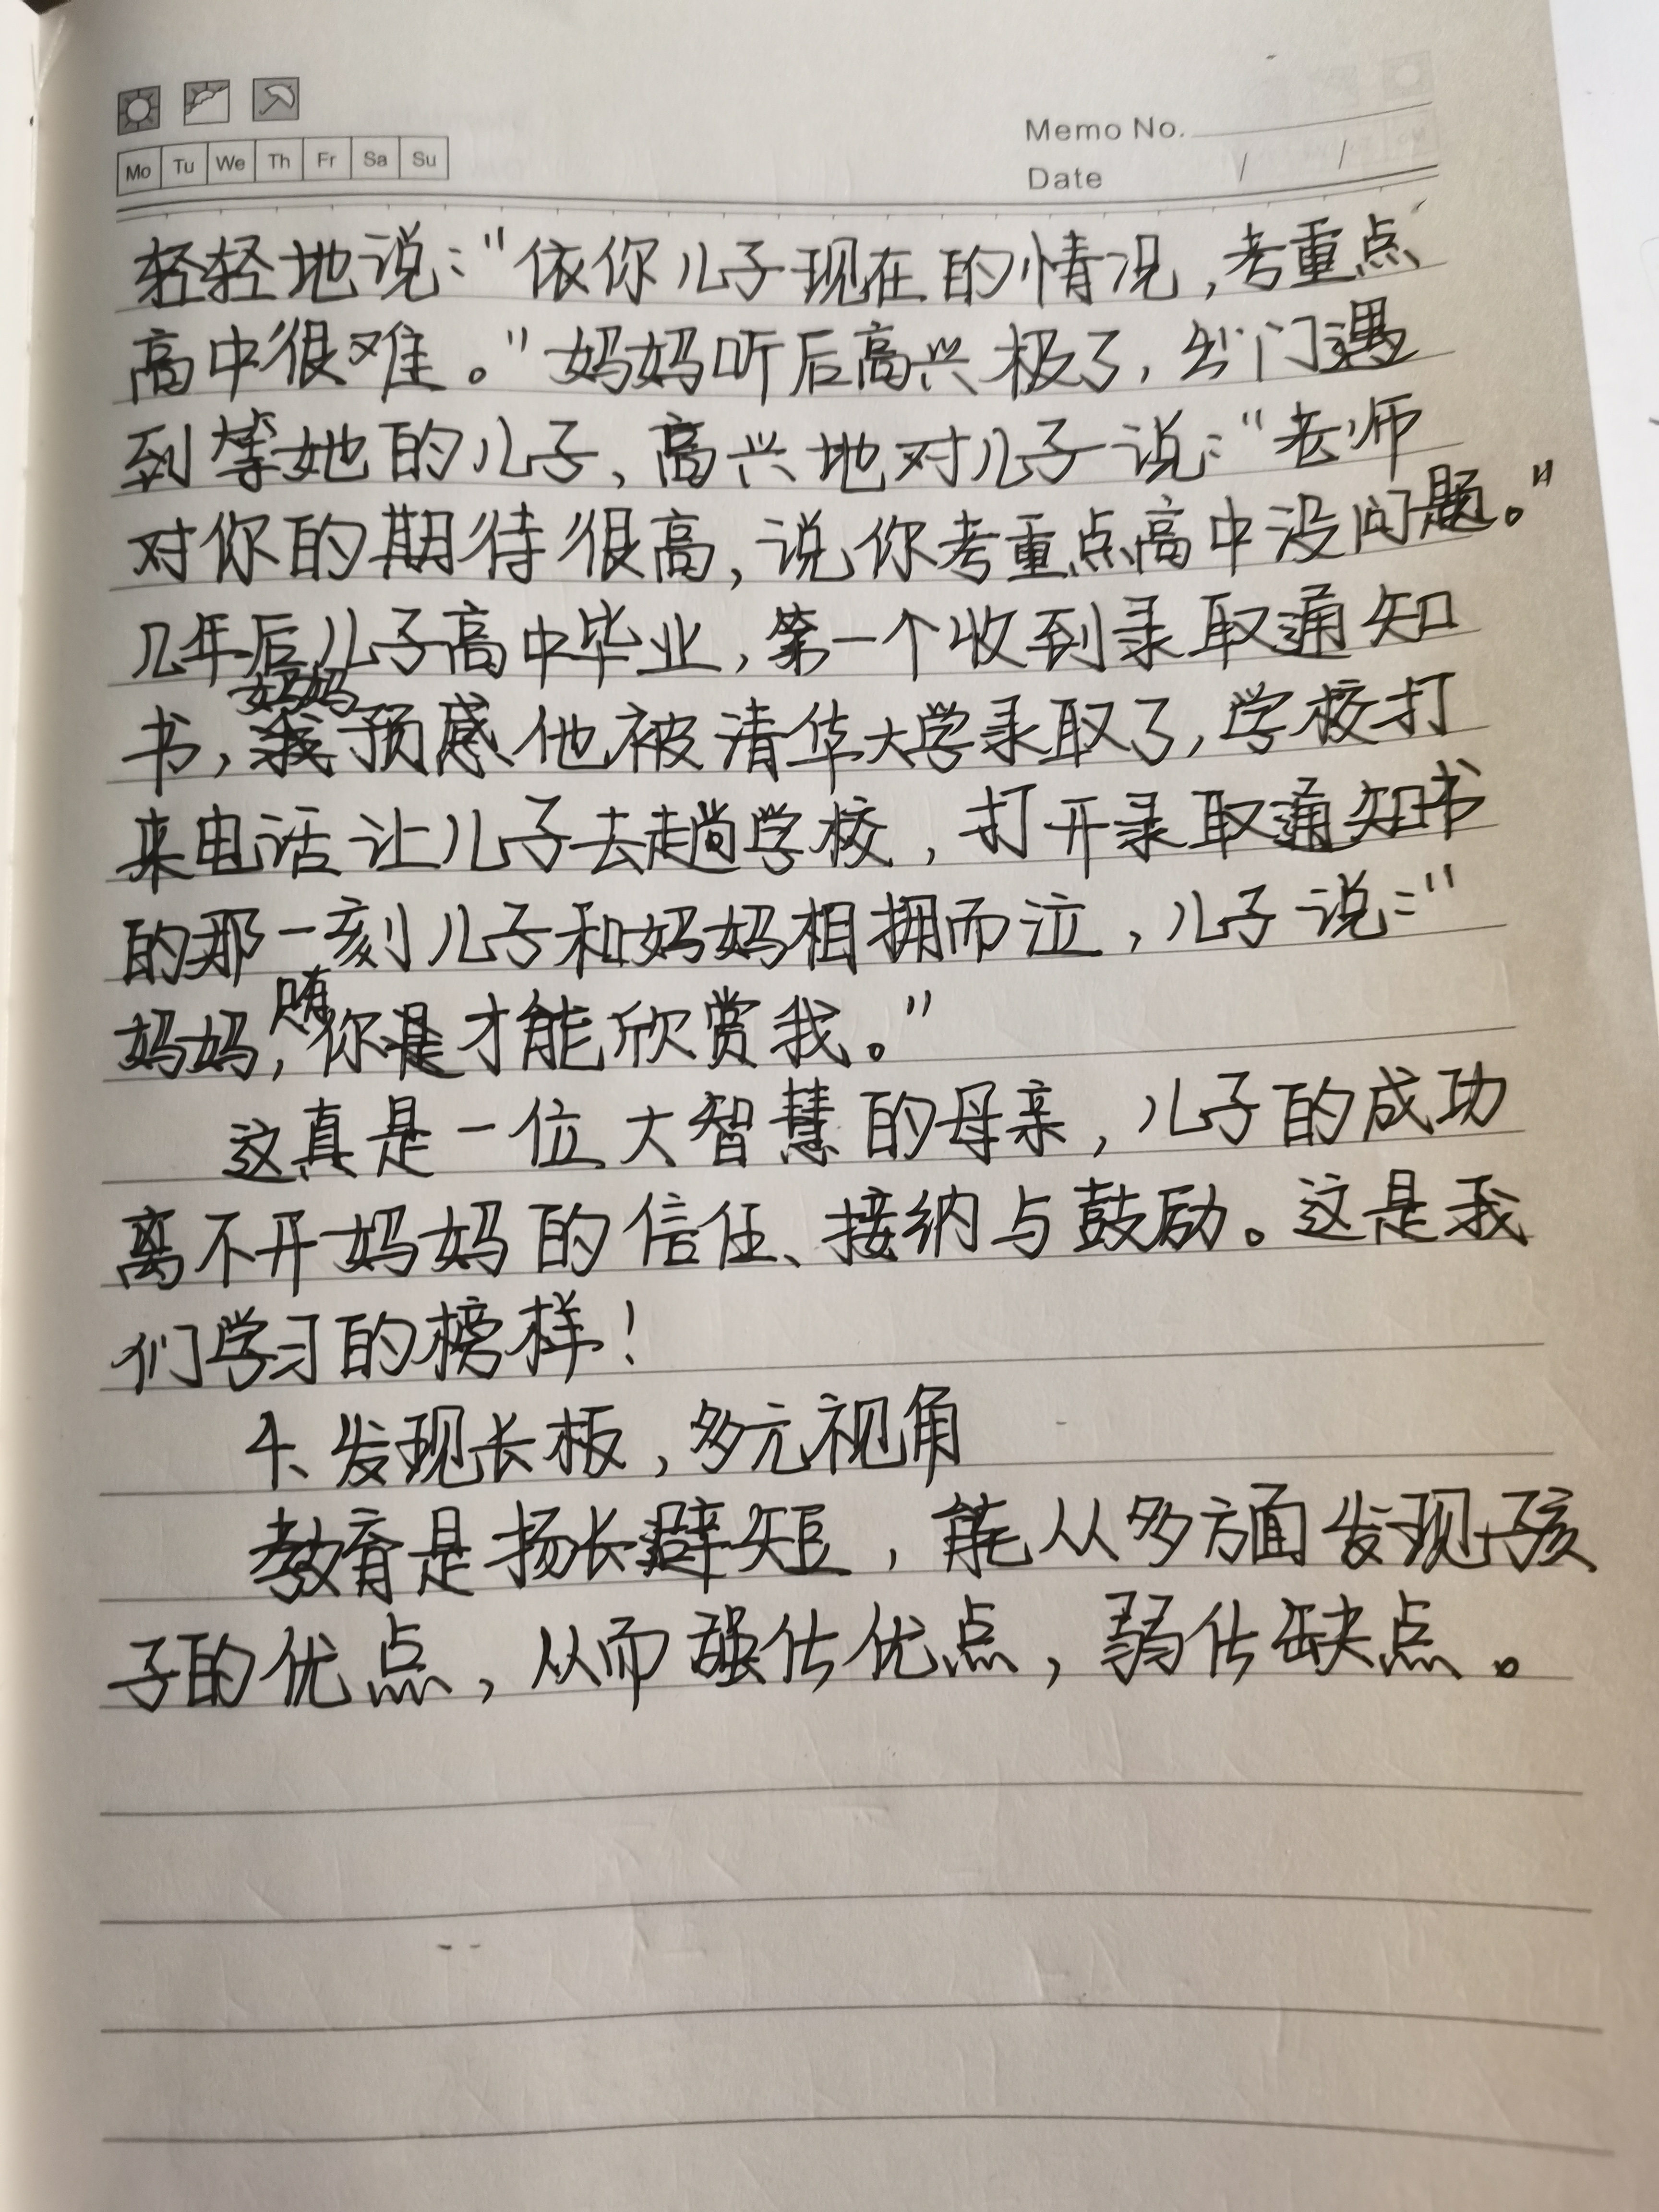 Mo Tu We Th Fr Sa Su
Memo No.
Date / /
轻轻地说:"依你儿子现在的情况,考重点
高中很难。"妈妈听后高兴极了,出门遇
到等她的儿子,高兴地对儿子说:"老师
对你的期待很高,说你考重点高中没问题。"
几年后儿子高中毕业,第一个收到录取通知
书,妈妈预感他被清华大学录取了,学校打
来电话让儿子去趟学校,打开录取通知书
的那一刻儿子和妈妈相拥而泣,儿子说:"
妈妈,你是才能欣赏我。"
这真是一位大智慧的母亲,儿子的成功
离不开妈妈的信任、接纳与鼓励。这是我
们学习的榜样!
4、发现长板,多元视角
教育是扬长辟短,能从多方面发现孩
子的优点,从而强估优点,弱估缺点。